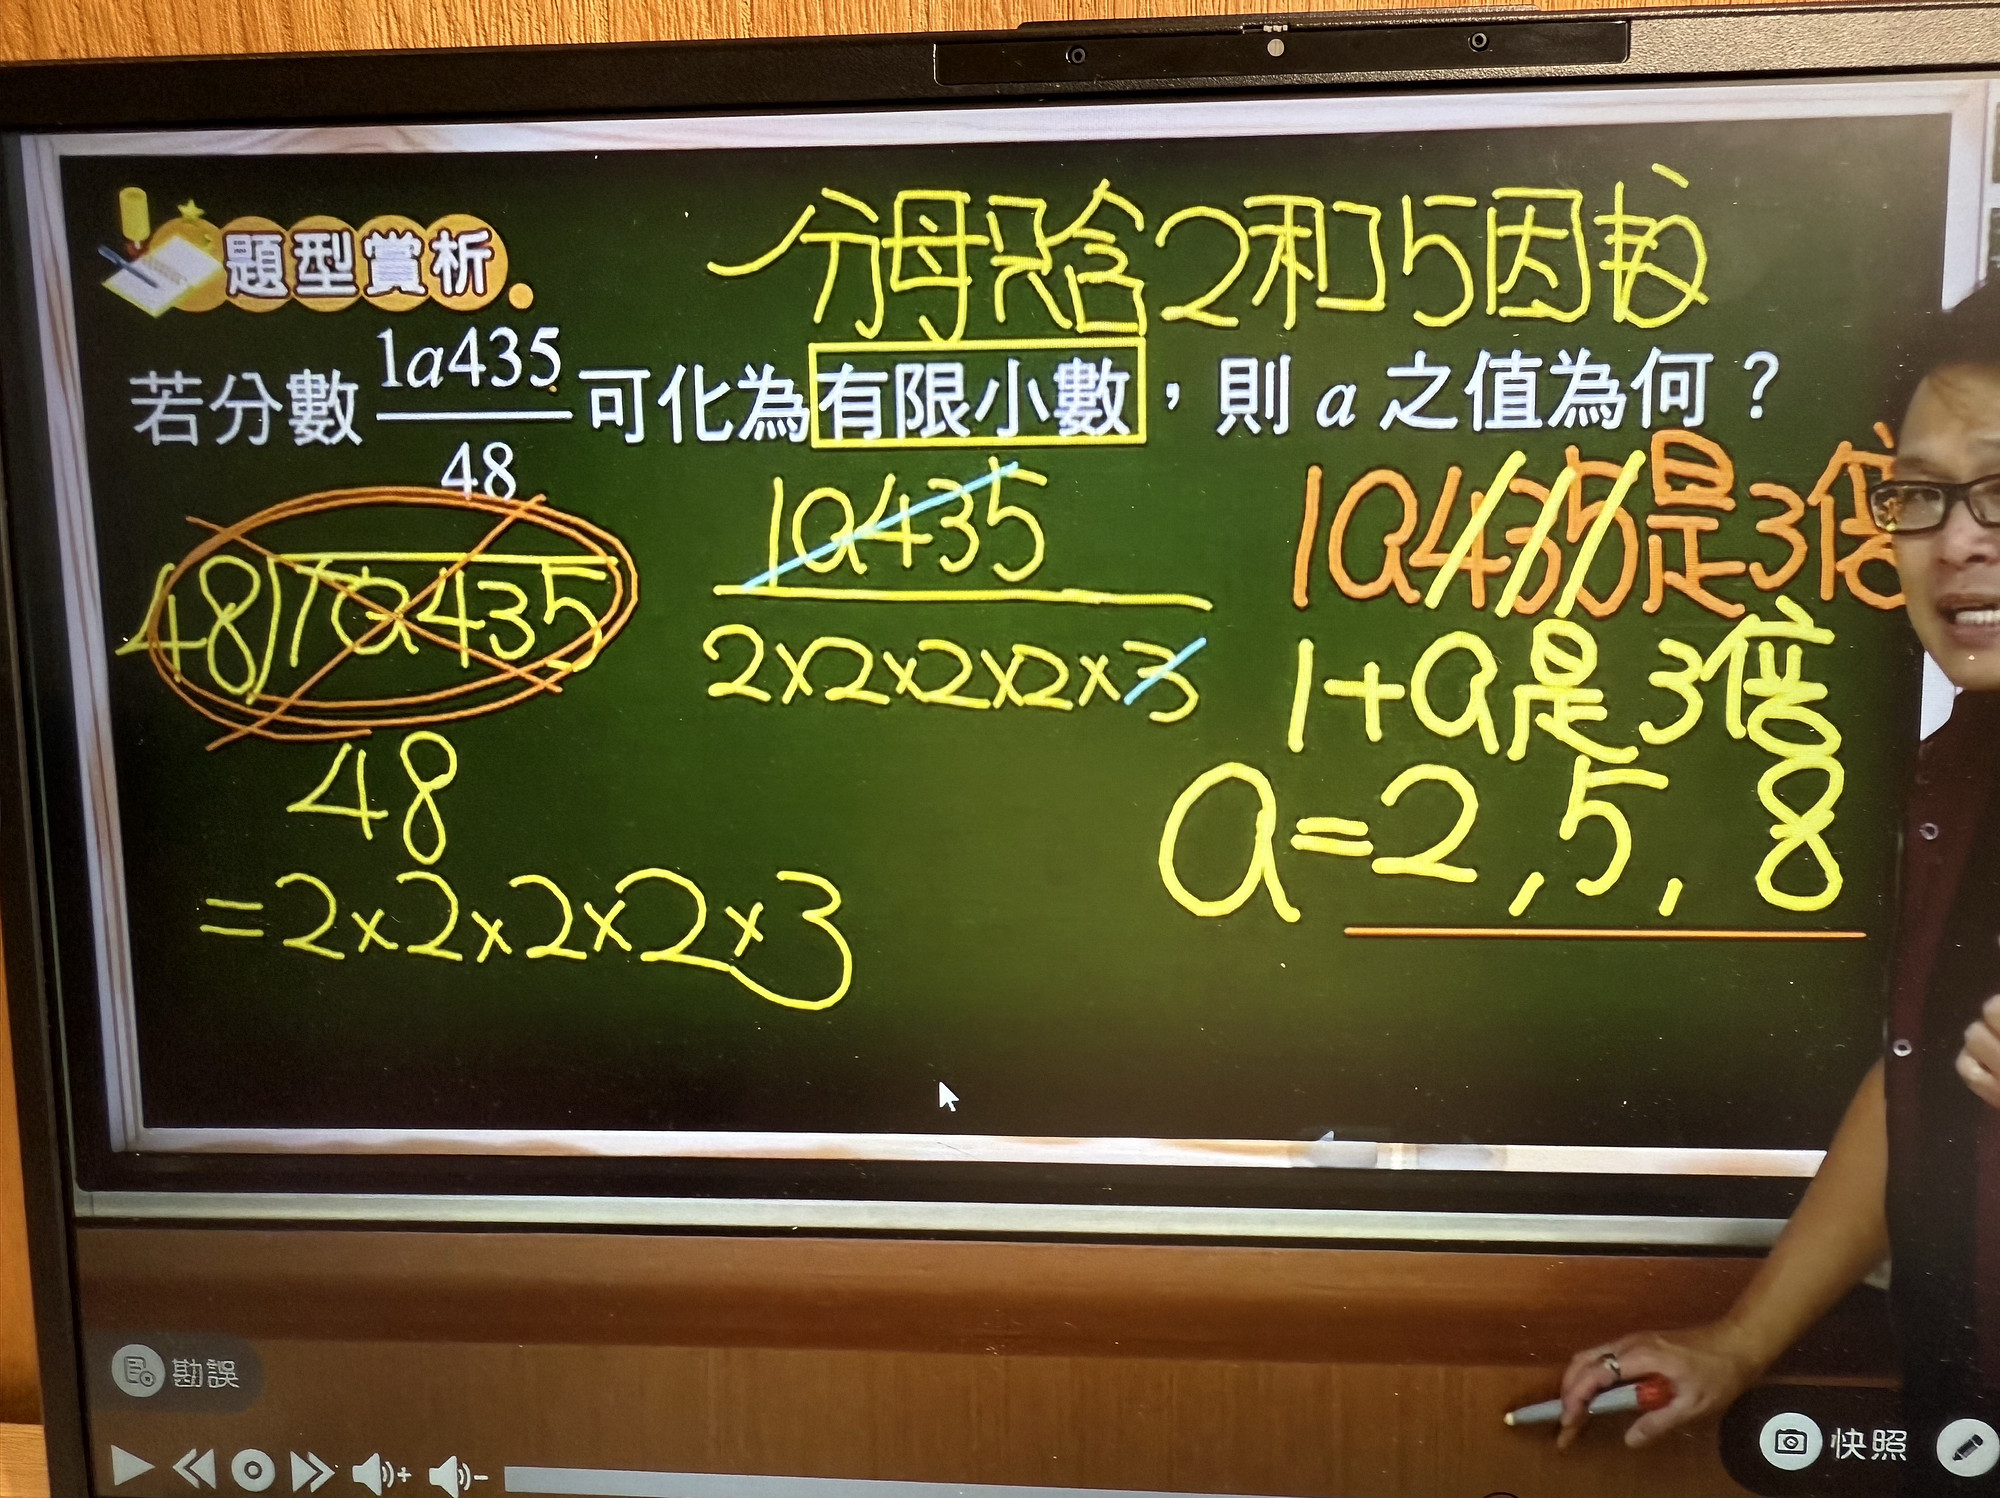 分母只含2和5因數
題型賞析
若分數 1a435/48 可化為有限小數，則 a 之值為何？
48)1a435
1a435
2×2×2×2×3
1a435是3倍
1+a是3倍
48
=2×2×2×2×3
a=2,5,8
勘誤
快照